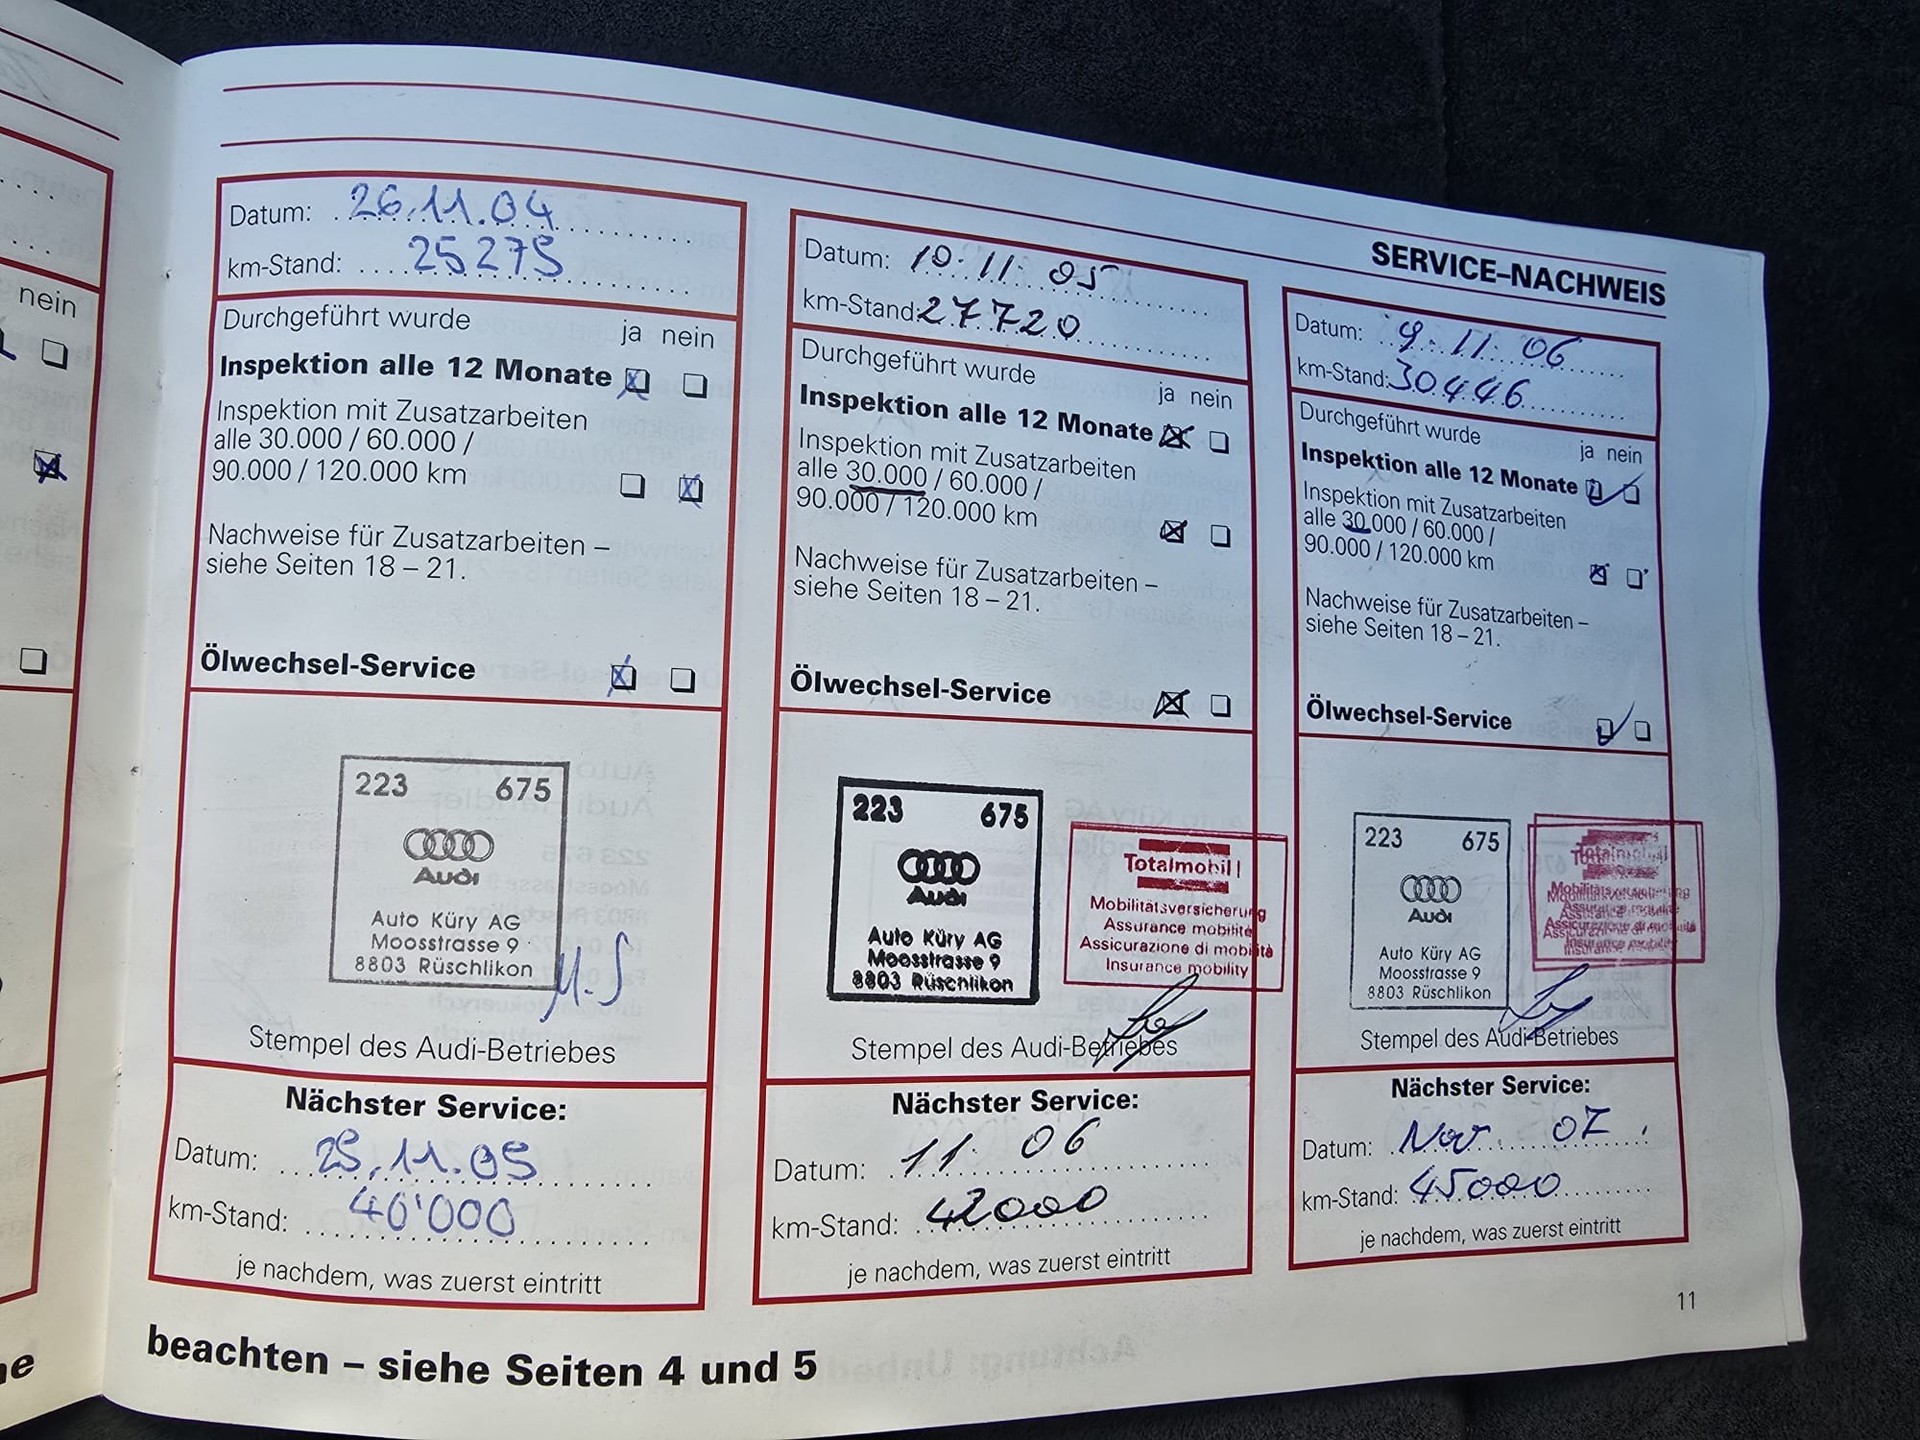 SERVICE–NACHWEIS
nein
Datum: 26.11.04
km-Stand: 25275
Durchgeführt wurde ja nein
Inspektion alle 12 Monate
Inspektion mit Zusatzarbeiten
alle 30.000 / 60.000 /
90.000 / 120.000 km
Nachweise für Zusatzarbeiten –
siehe Seiten 18 – 21.
Ölwechsel-Service
223 675
Audi
Auto Küry AG
Moosstrasse 9
8803 Rüschlikon
M.S
Stempel des Audi-Betriebes
Nächster Service:
Datum: 25.11.05
km-Stand: 40'000
je nachdem, was zuerst eintritt
Datum: 10.11.05
km-Stand: 27720
Durchgeführt wurde ja nein
Inspektion alle 12 Monate
Inspektion mit Zusatzarbeiten
alle 30.000 / 60.000 /
90.000 / 120.000 km
Nachweise für Zusatzarbeiten –
siehe Seiten 18 – 21.
Ölwechsel-Service
223 675
Audi
Auto Küry AG
Moosstrasse 9
8803 Rüschlikon
Totalmobil!
Mobilitätsversicherung
Assurance mobilité
Assicurazione di mobilità
Insurance mobility
Stempel des Audi-Betriebes
Nächster Service:
Datum: 11. 06
km-Stand: 42000
je nachdem, was zuerst eintritt
Datum: 9.11.06
km-Stand: 30446
Durchgeführt wurde ja nein
Inspektion alle 12 Monate
Inspektion mit Zusatzarbeiten
alle 30.000 / 60.000 /
90.000 / 120.000 km
Nachweise für Zusatzarbeiten –
siehe Seiten 18 – 21.
Ölwechsel-Service
223 675
Audi
Auto Küry AG
Moosstrasse 9
8803 Rüschlikon
Totalmobil
Mobilitätsversicherung
Assurance mobilité
Assicurazione di mobilità
Insurance mobility
Stempel des Audi-Betriebes
Nächster Service:
Datum: Nov. 07.
km-Stand: 45000
je nachdem, was zuerst eintritt
11
beachten – siehe Seiten 4 und 5